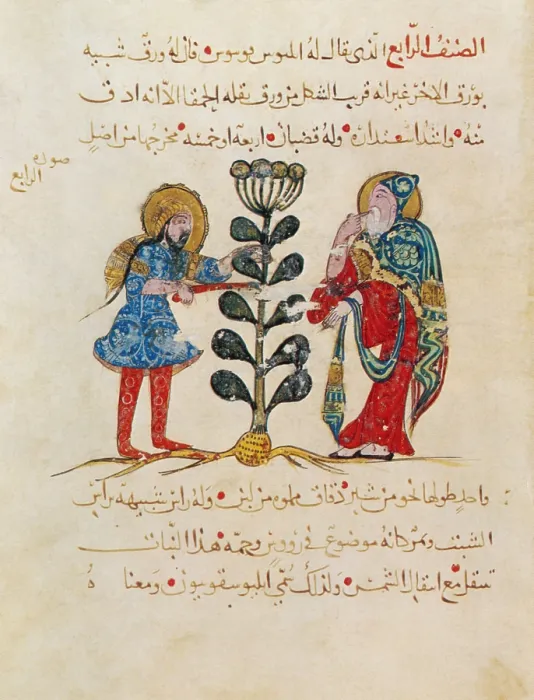 الصنف الرابع الذي يقال له فان له ورق شبيه
بورق الاخر غير انه قريب الشكل من ورق بقله الحمقا الا انه ادق
منه • واشد استداره • وله قضبان • اربعه او خمسه • مخرجها من اصل
صورة
الرابع
واحد طولها نحو من شبر دقاق مملوه من لبن • وله راس شبيهه براس
الشبث وثمر كانه موضوع في روس وجمه هذا النبات
تنتقل مع انتقال الشمس • ولذلك سمي • ومعناه